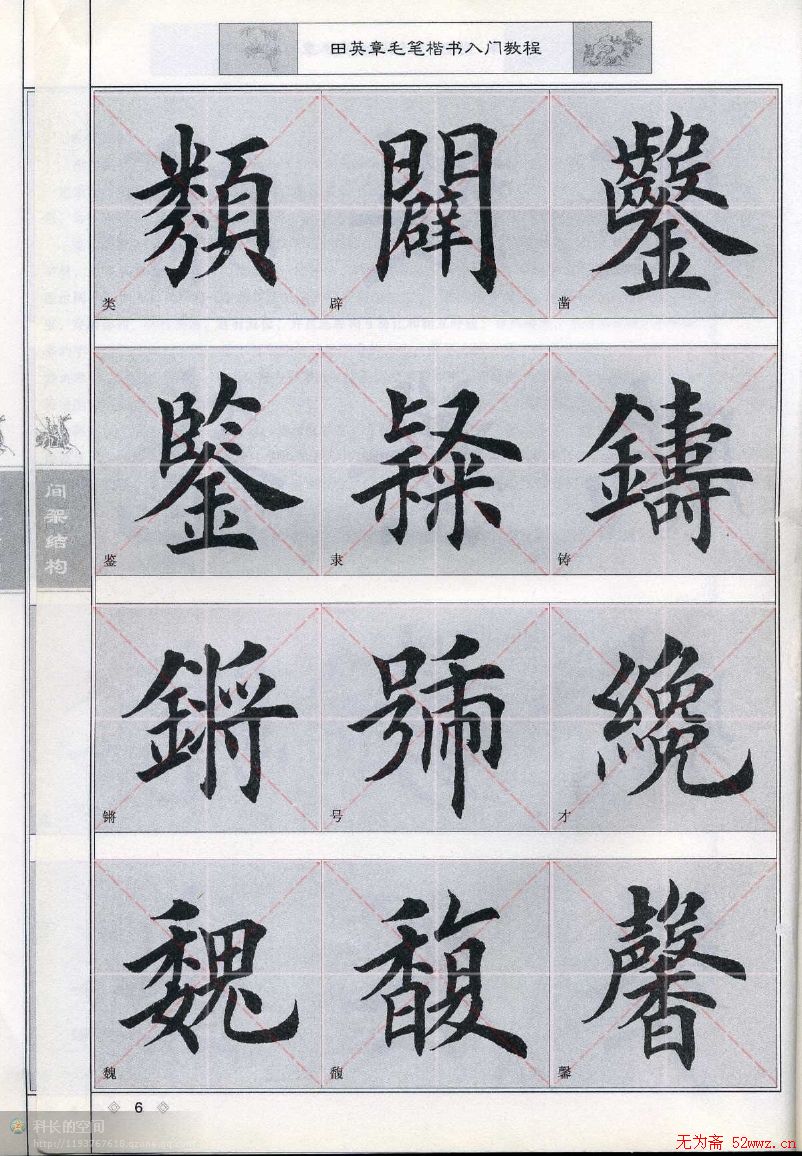 田英章毛笔楷书入门教程
類 闢 鑿
类 辟 凿
鑒 隸 鑄
鉴 隶 铸
间架结构
鏘 號 纔
锵 号 才
魏 馥 馨
魏 馥 馨
6
科长的空间
http://1193767618.qzone.qq.com
无为斋 52wwz.cn